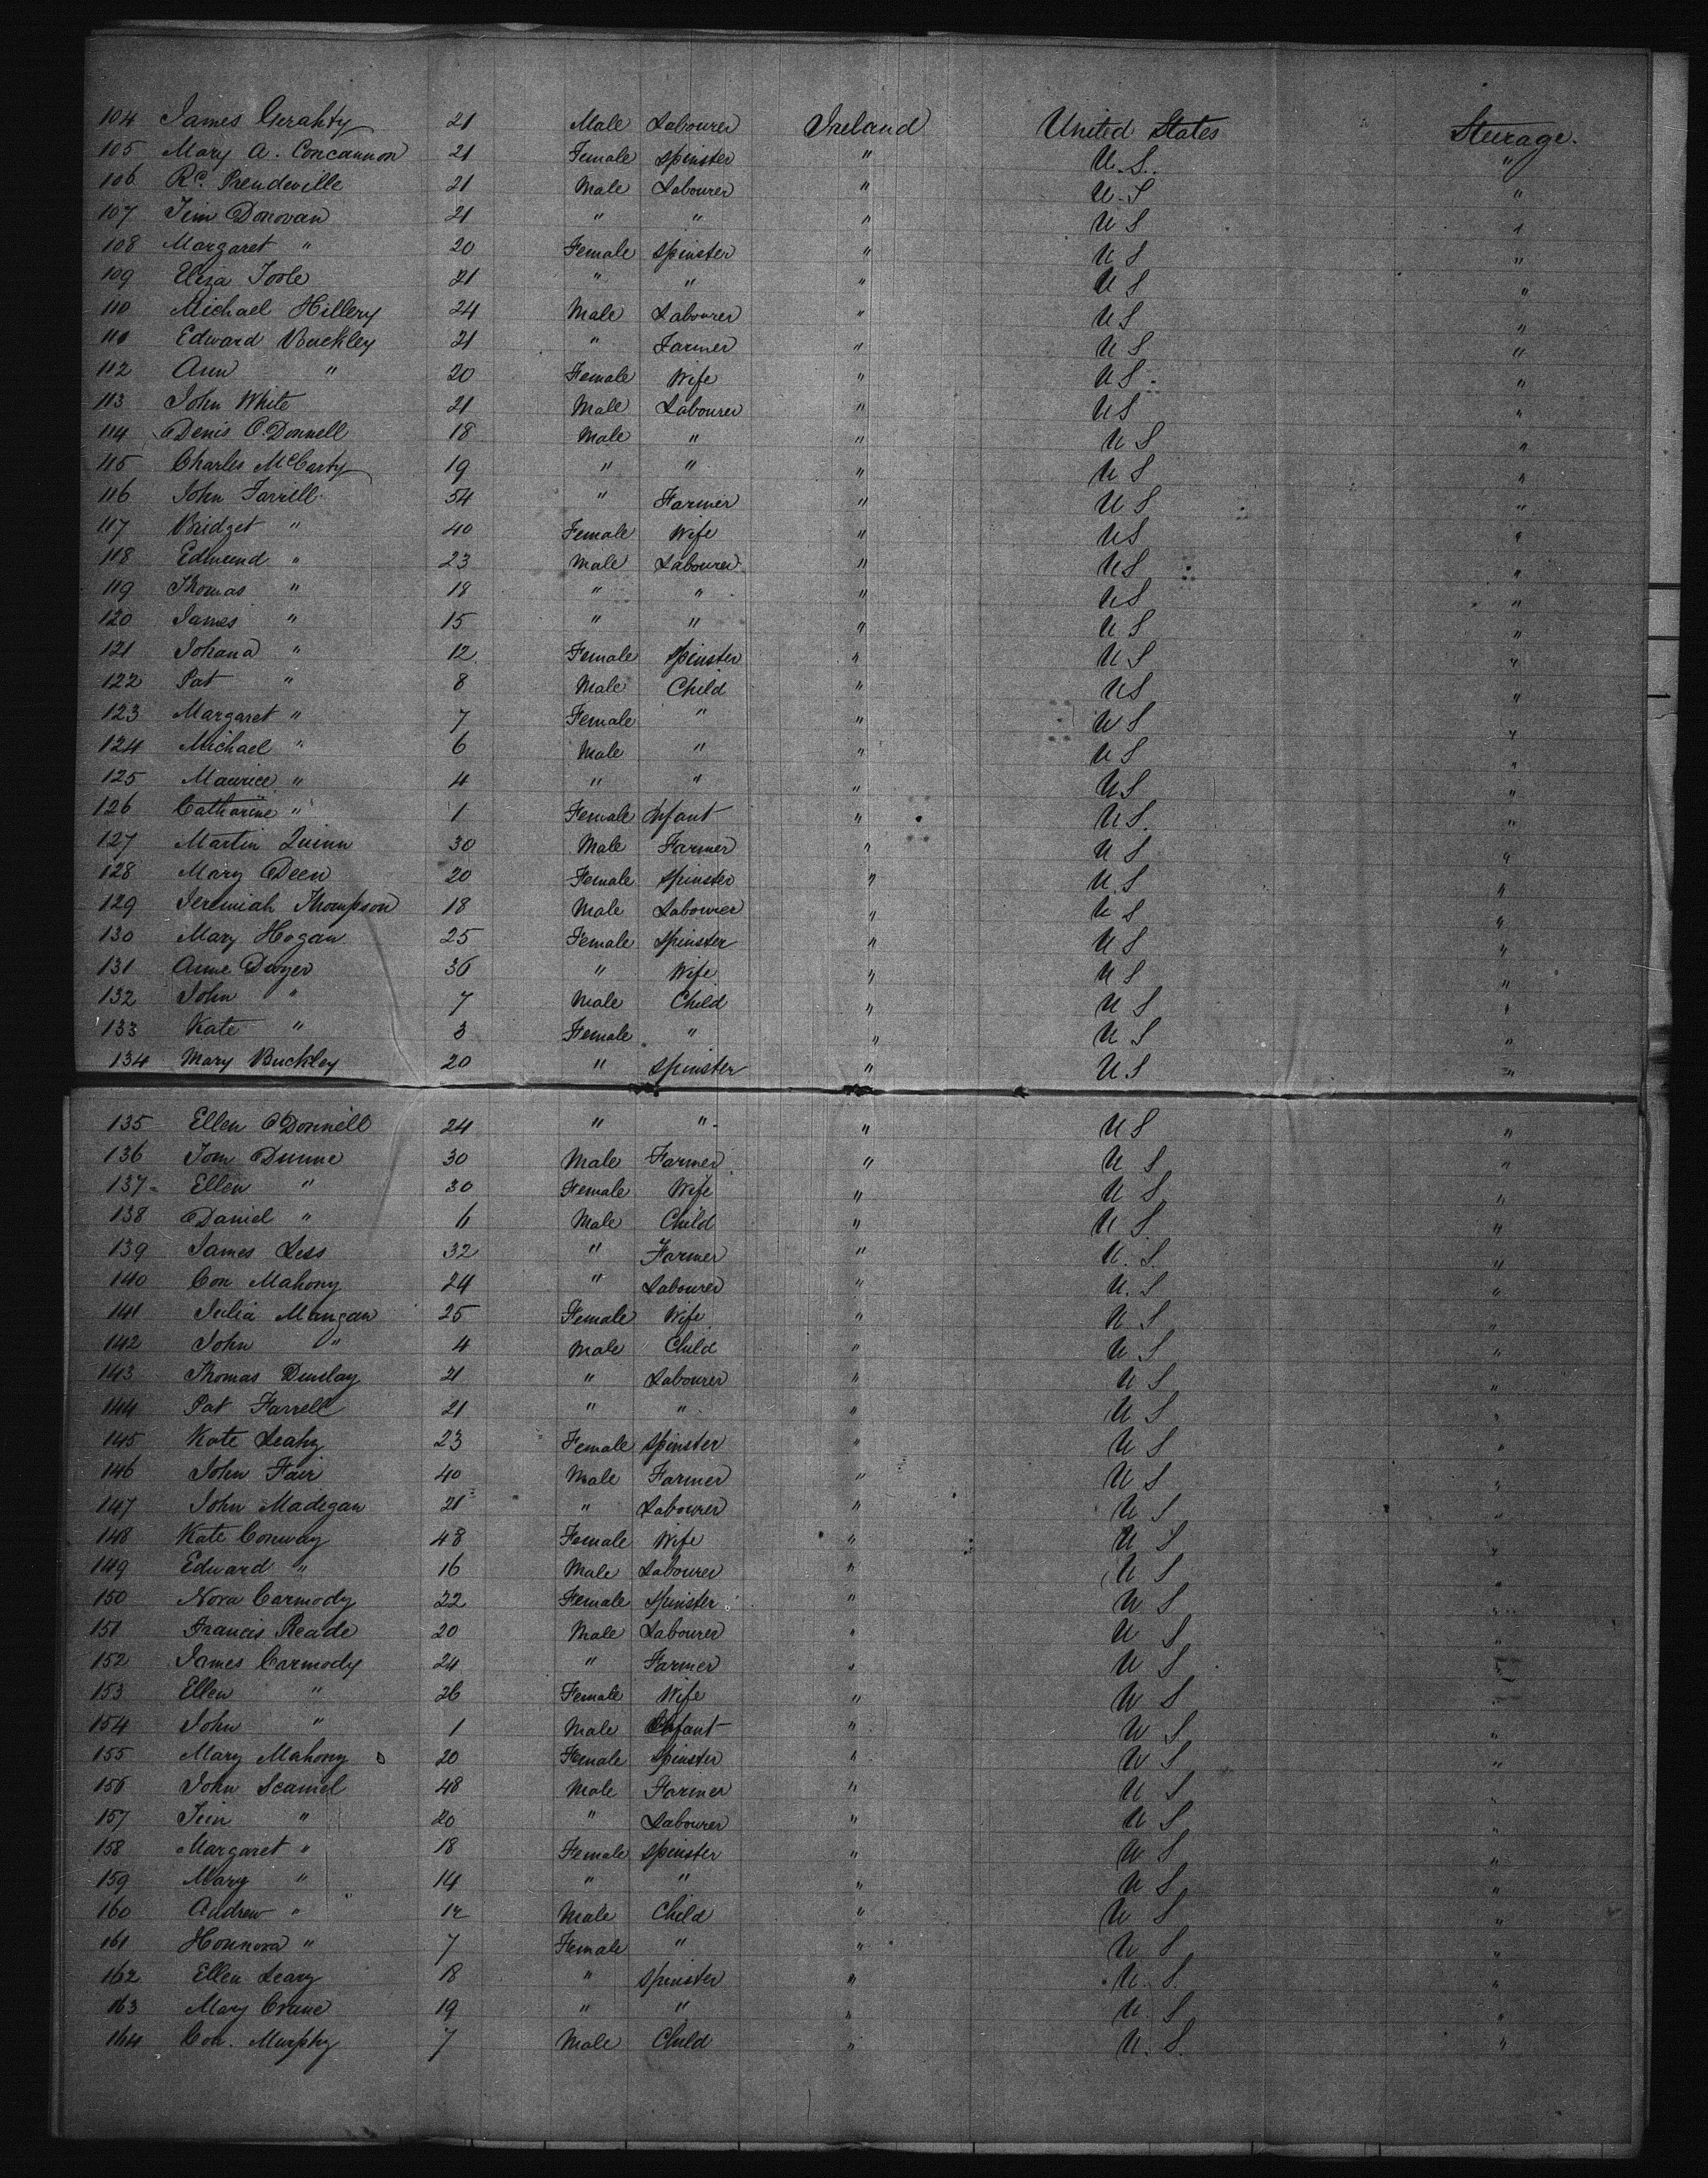 104 James Gerahty 21 Male Labourer Ireland United States Steerage.
105 Mary A. Concannon 21 Female Spinster " U.S. "
106 Rd. Prendeville 21 Male Labourer " U.S "
107 Jim Donovan 21 " " " U S "
108 Margaret " 20 Female Spinster " U S "
109 Eliza Toole 21 " " " U S "
110 Michael Hillery 24 Male Labourer " U S "
111 Edward Buckley 21 " Farmer " U S "
112 Ann " 20 Female Wife " U S "
113 John White 21 Male Labourer " U S "
114 Denis O'Donnell 18 Male " " U S "
115 Charles McCarty 19 " " " U S "
116 John Farrell 54 " Farmer " U S "
117 Bridget " 40 Female Wife " U S "
118 Edmund " 23 Male Labourer " U S "
119 Thomas " 18 " " " U S "
120 James " 15 " " " U S "
121 Johana " 12 Female Spinster " U S "
122 Pat " 8 Male Child " U S "
123 Margaret " 7 Female " " U S "
124 Michael " 6 Male " " U S "
125 Maurice " 4 " " " U S "
126 Catharine " 1 Female Infant " U S. "
127 Martin Quinn 30 Male Farmer " U S "
128 Mary Deen 20 Female Spinster " U.S "
129 Jeremiah Thompson 18 Male Labourer " U S "
130 Mary Hogan 25 Female Spinster " U S "
131 Anne Dwyer 36 " Wife " U S "
132 John " 7 Male Child " U S "
133 Kate " 3 Female " " U S "
134 Mary Buckley 20 " Spinster " U S "
135 Ellen O'Donnell 24 " " " U S "
136 Tom Dunne 30 Male Farmer " U S "
137 Ellen " 30 Female Wife " U S "
138 Daniel " 6 Male Child " U S "
139 James Less 32 " Farmer " U.S. "
140 Con Mahony 24 " Labourer " U.S "
141 Julia Mangan 25 Female Wife " U S "
142 John " 4 Male Child " U S "
143 Thomas Dunlay 21 " Labourer " U S "
144 Pat Farrell 21 " " " U S "
145 Kate Leahy 23 Female Spinster " U S "
146 John Fair 40 Male Farmer " U S "
147 John Madigan 21 " Labourer " U S "
148 Kate Conway 48 Female Wife " U S "
149 Edward " 16 Male Labourer " U S "
150 Nora Carmody 22 Female Spinster " U S "
151 Francis Reade 20 Male Labourer " U S "
152 James Carmody 24 " Farmer " U S "
153 Ellen " 26 Female Wife " U S "
154 John " 1 Male Infant " U S "
155 Mary Mahony 20 Female Spinster " U S "
156 John Scannel 48 Male Farmer " U S "
157 Jim " 20 " Labourer " U S "
158 Margaret " 18 Female Spinster " U S "
159 Mary " 14 " " " U S "
160 Andrew " 12 Male Child " U S "
161 Honnora " 7 Female " " U S "
162 Ellen Leary 18 " Spinster " U. S. "
163 Mary Crane 19 " " " U. S "
164 Con. Murphy 7 Male Child " U. S. "